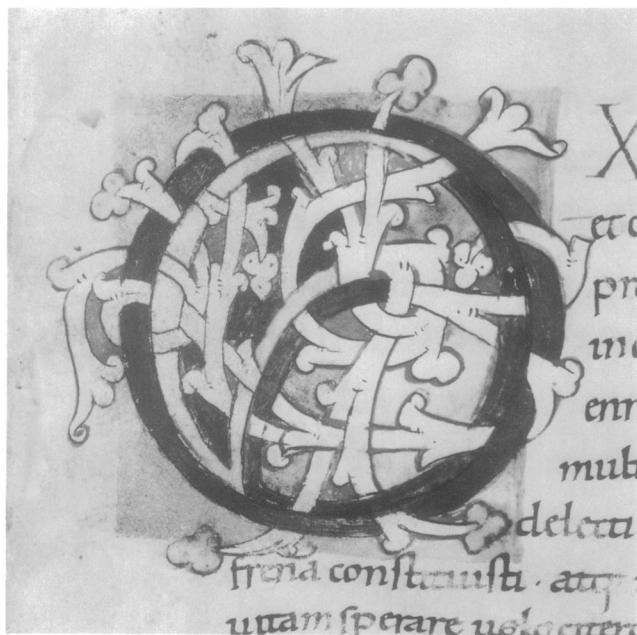 X
et c
pr
in
enr
mul
delecti
frena constituisti · atq;
uitam sperare uelociter